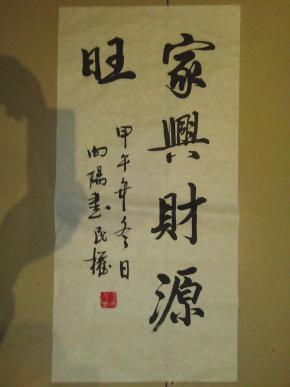 家興財源
旺
甲午年冬日
向陽書民權